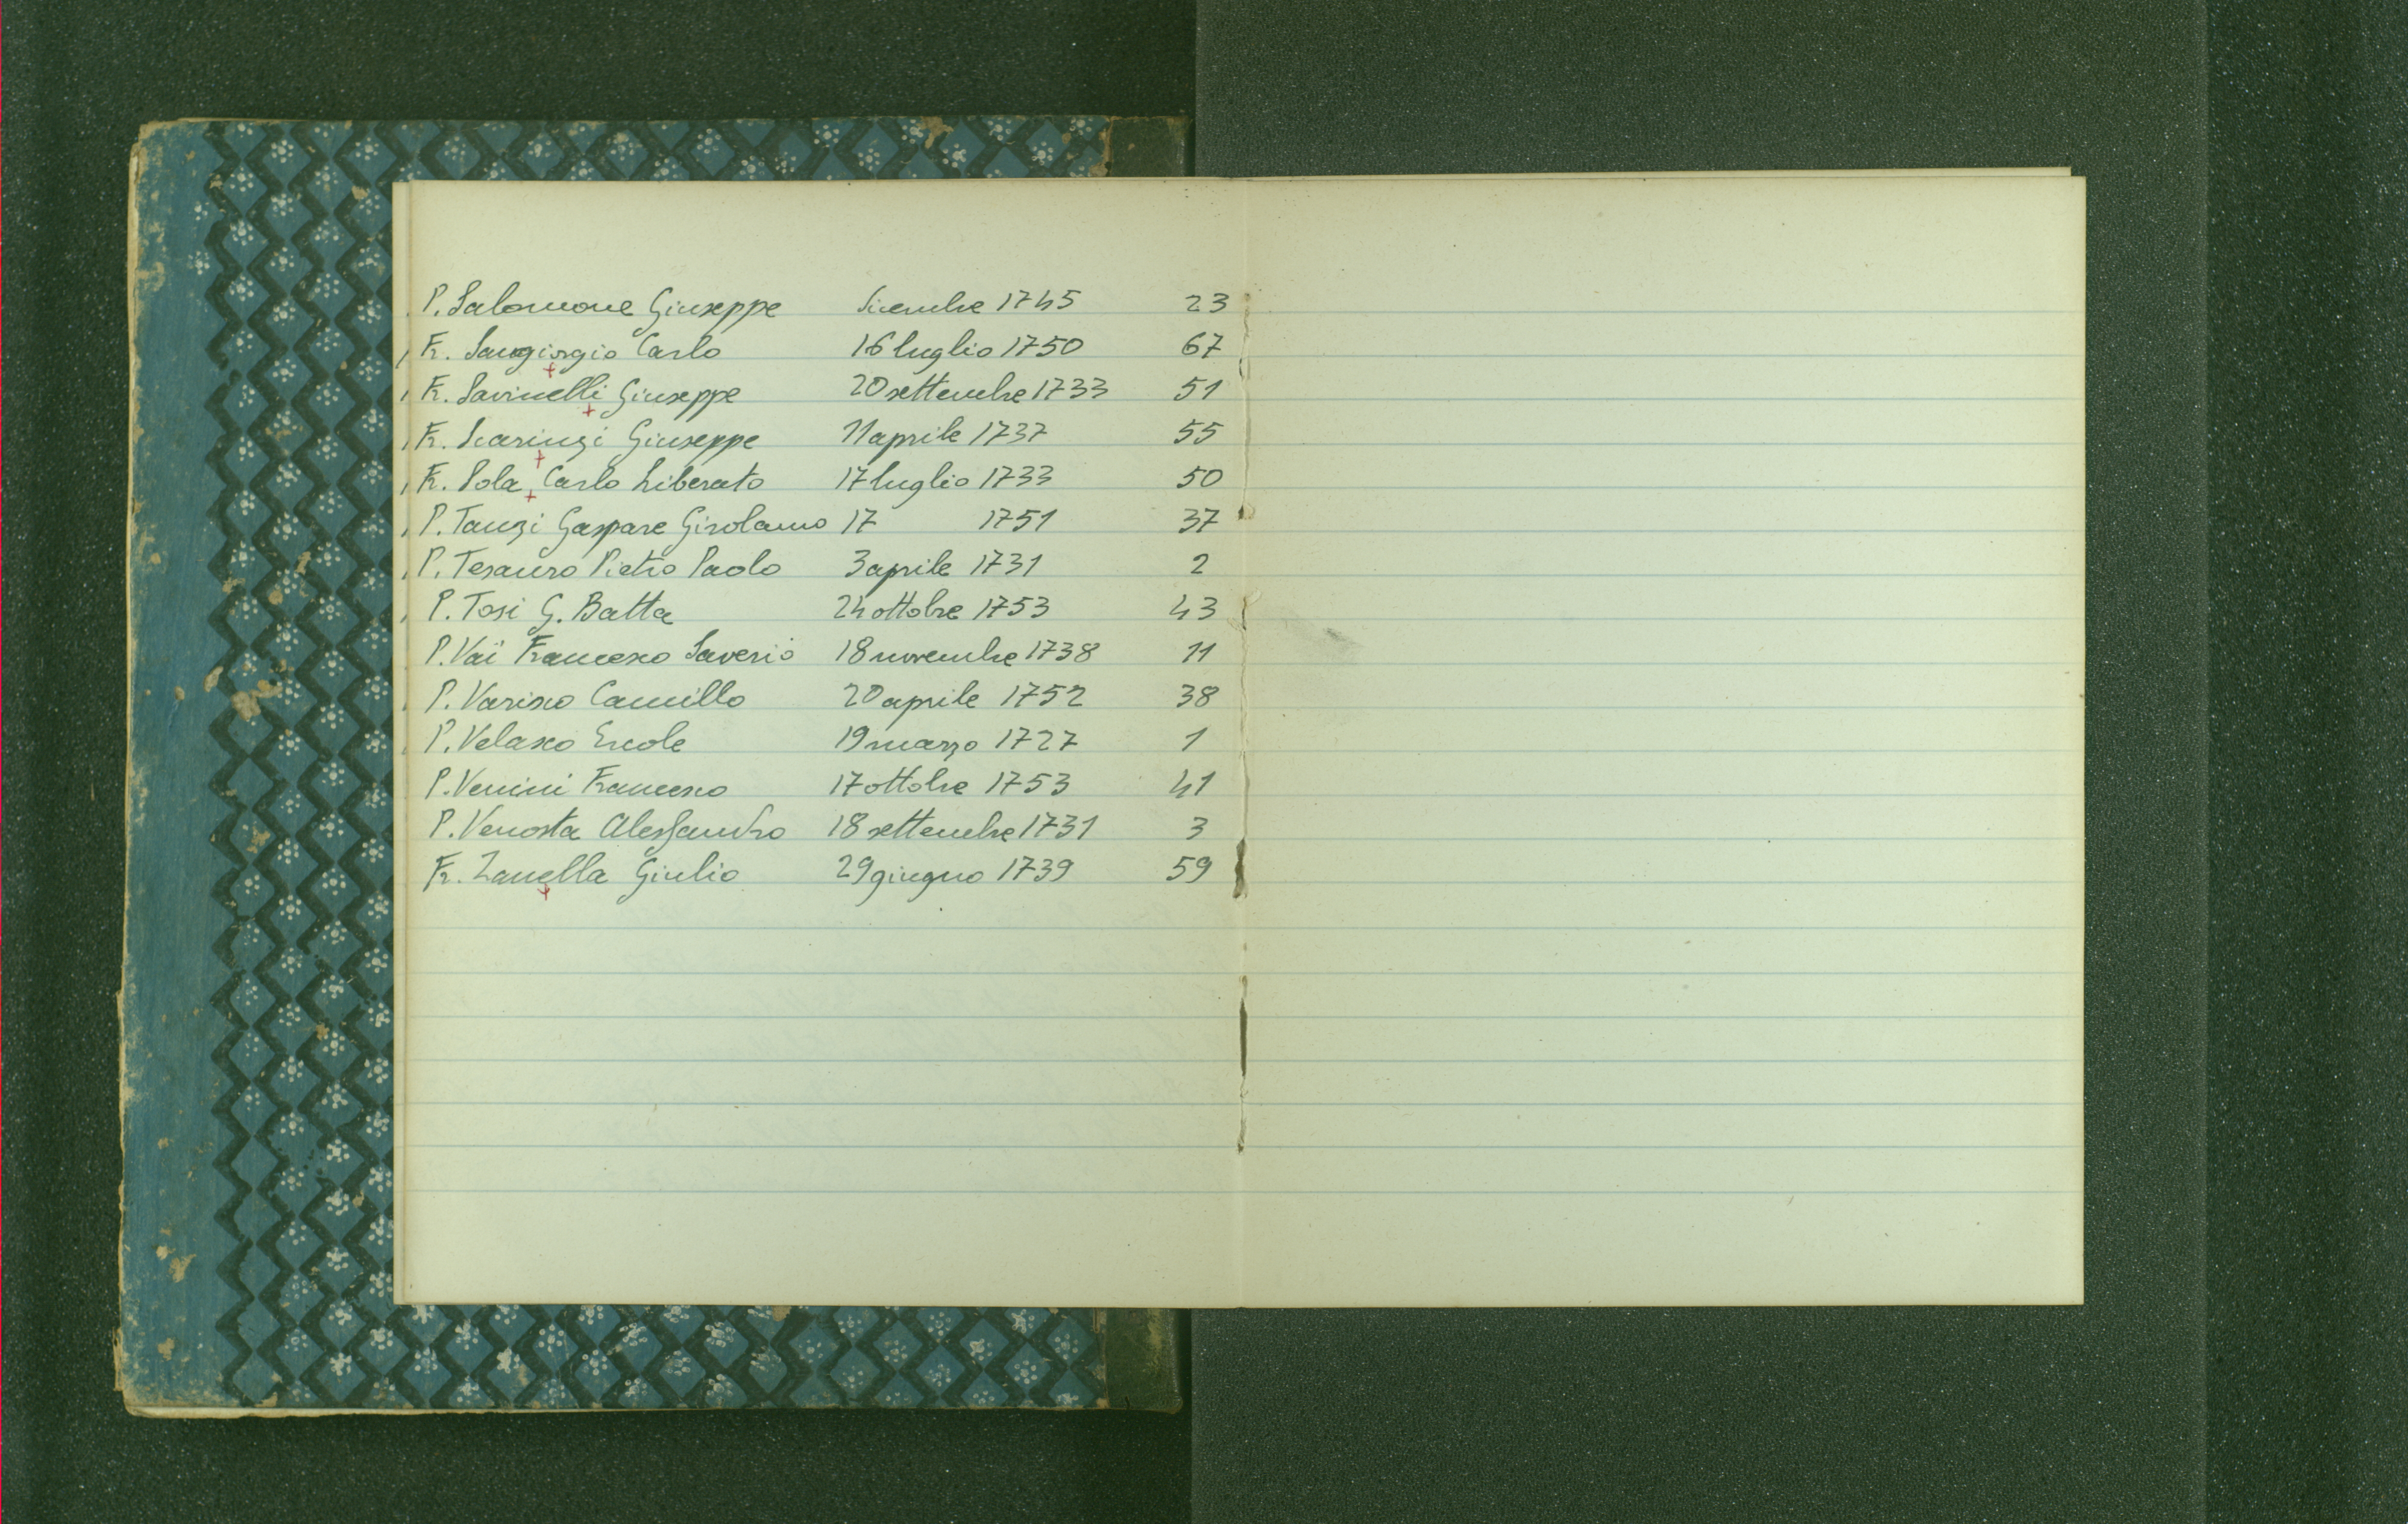 P. Salomone Giuseppe dicembre 1745 23
Fr. Sangiorgio Carlo 16 luglio 1750 67
Fr. Savinelli Giuseppe 20 settembre 1733 51
Fr. Scarinzi Giuseppe 11 aprile 1737 55
Fr. Sola Carlo Liberato 17 luglio 1733 50
P. Tanzi Gaspare Girolamo 17 1751 37
P. Tesauro Pietro Paolo 3 aprile 1731 2
P. Tosi G. Batta 24 ottobre 1753 43
P. Vai Francesco Saverio 18 novembre 1738 11
P. Varisco Camillo 20 aprile 1752 38
P. Velasco Ercole 19 marzo 1727 1
P. Venini Francesco 17 ottobre 1753 41
P. Venosta Alessandro 18 settembre 1731 3
Fr. Zanella Giulio 29 giugno 1739 59